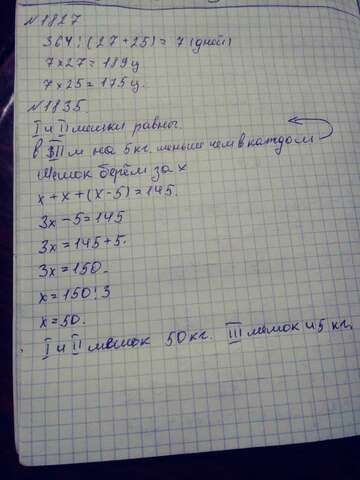 №1827
364:(27+25)=7(дней)
7×27=189ц
7×25=175ц.
№1835
I и II мешки равны.
в III м на 5кг. меньше чем в каждом
Мешок берём за x
x+x+(x-5)=145.
3x-5=145
3x=145+5.
3x=150.
x=150:3
x=50.
I и II мешок 50кг. III мешок 45кг.